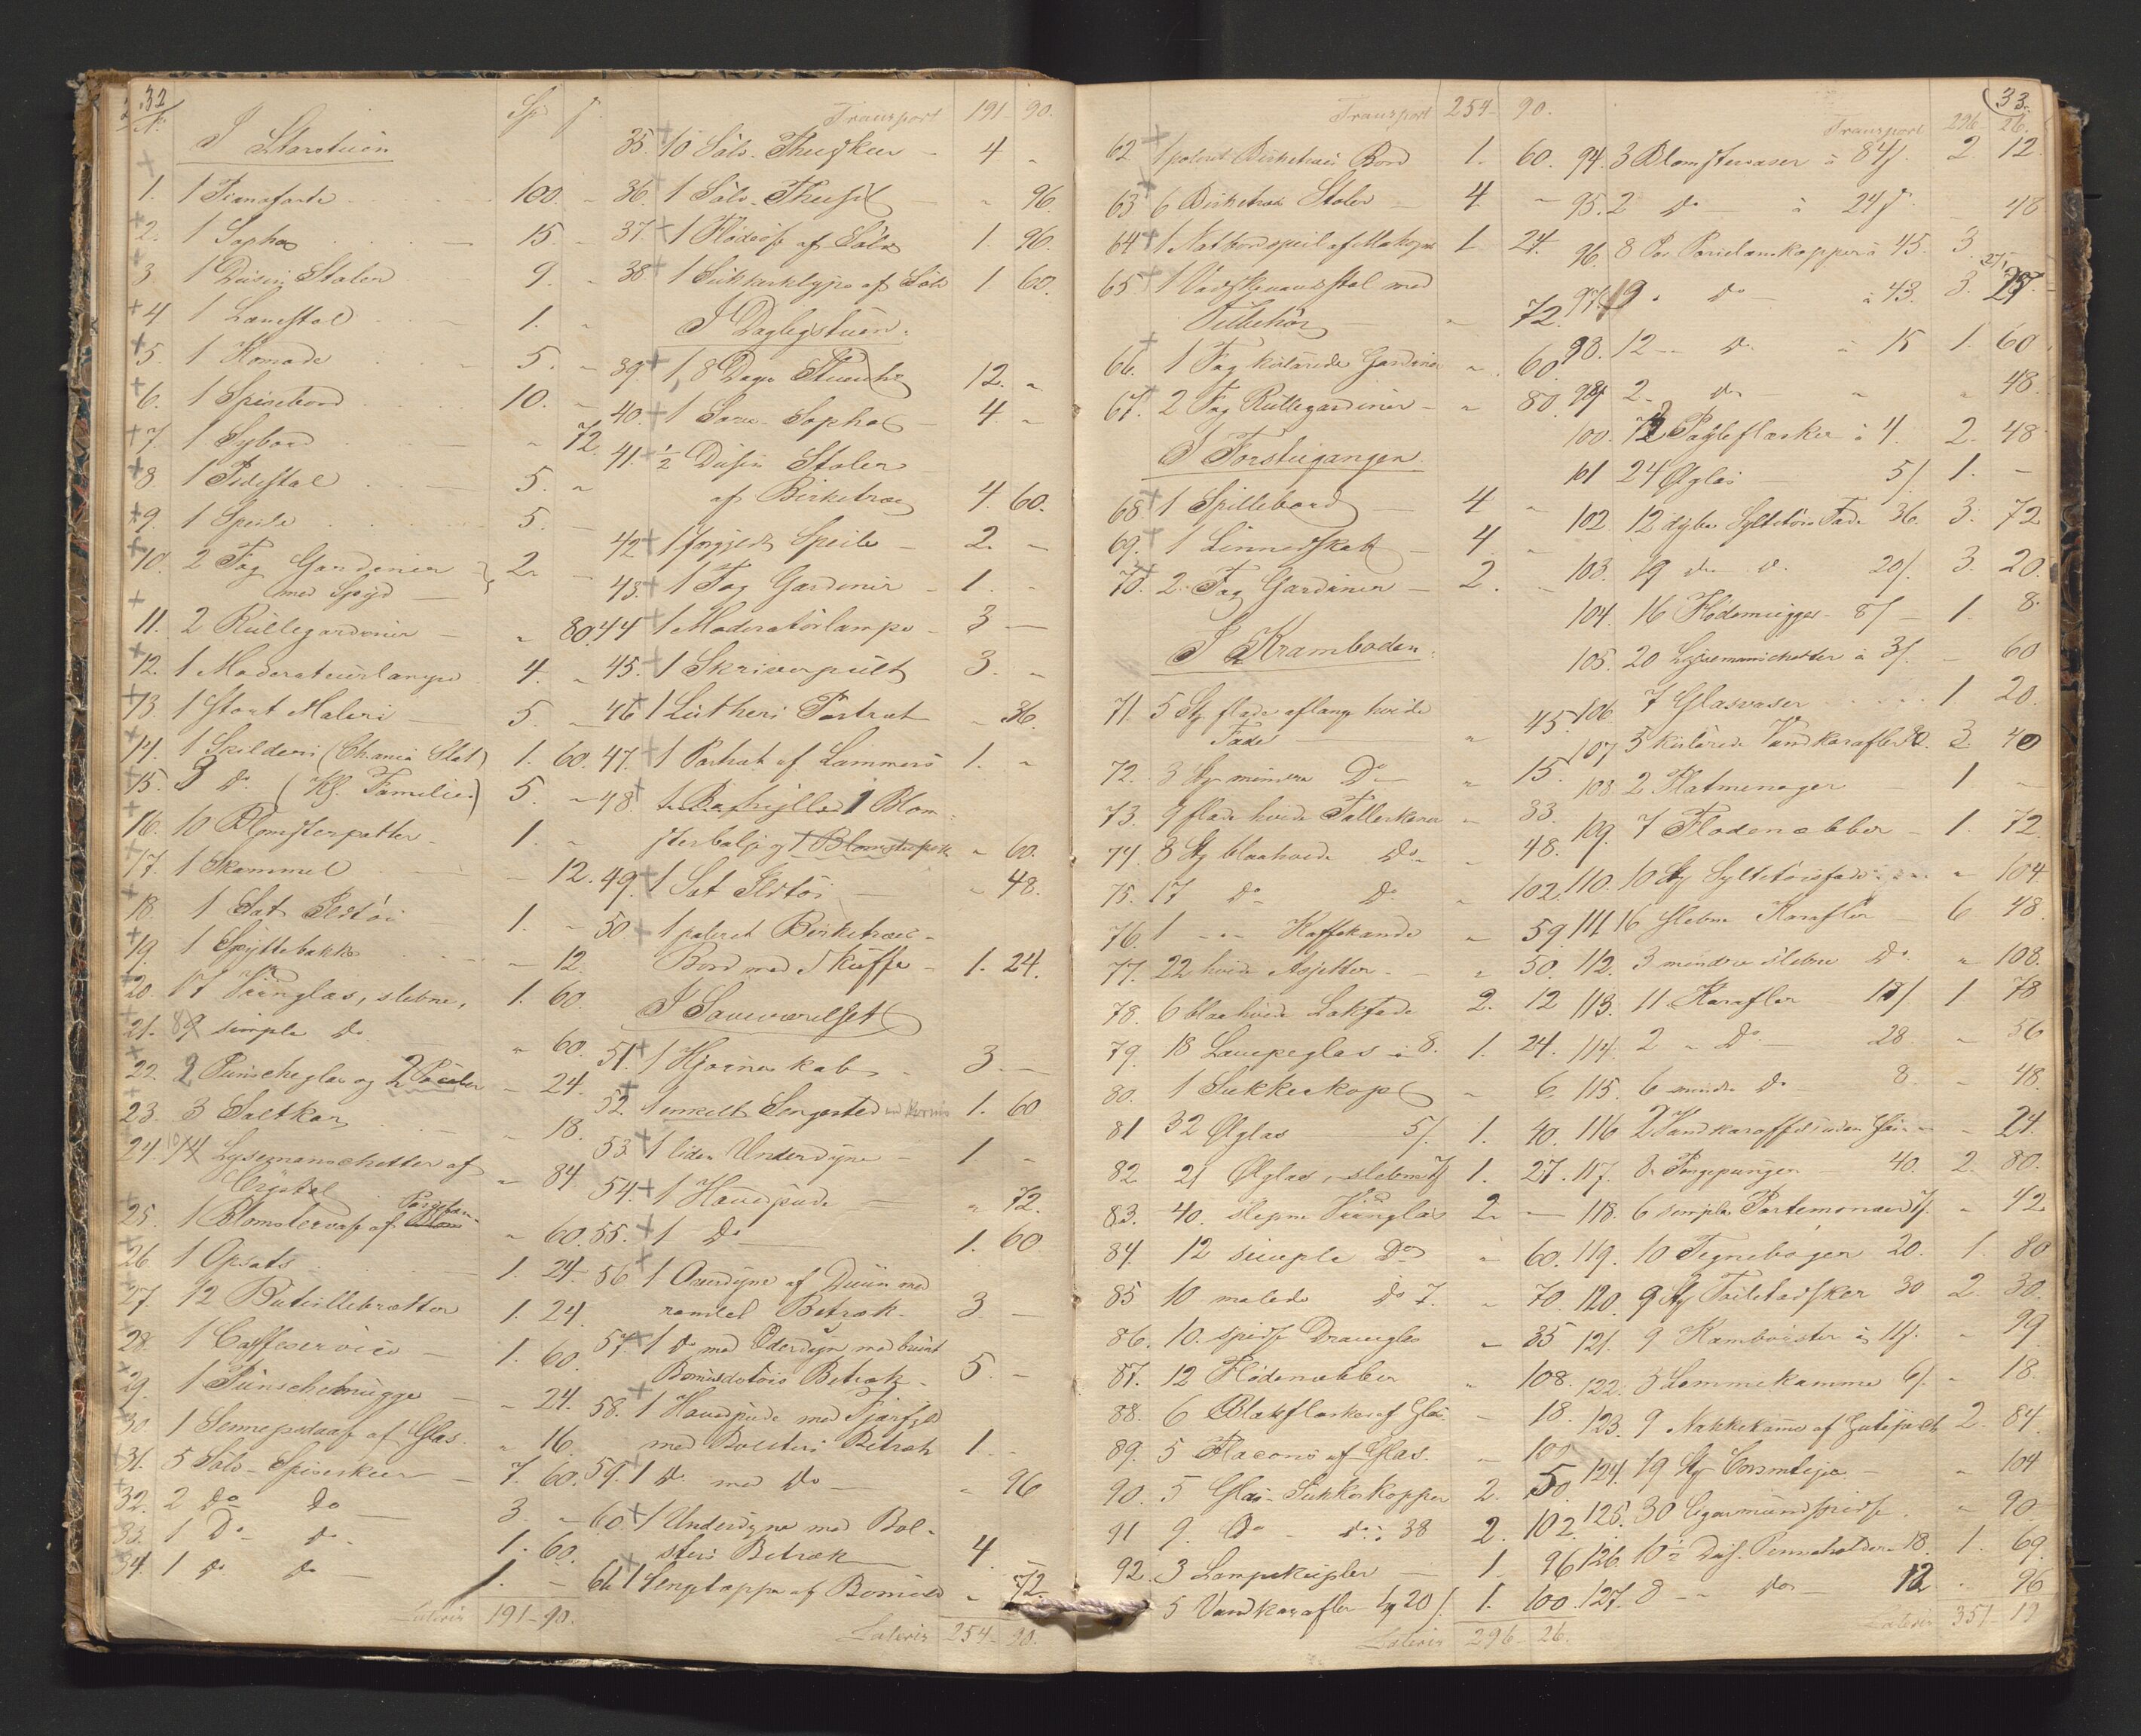 32
No. Spd. s.
I Storstuen
1. 1 Pianoforte 100. -
2. 1 Sopha 15. -
3 1 Dusin Stoler 9. -
4. 1 Lænestol 1. -
5. 1 Komode 5. -
6. 1 Spisebord 10. -
7. 1 Sybord - 72.
8 1 Pidestal 5. -
9. 1 Speile 5. -
10. 2 Fag Gardiner
med Spyd 2. -
11. 2 Rullegardiner - 80.
12. 1 Moderateurlampe 4. -
13. 1 stort Maleri 5. -
14. 1 Skilderi (Chania Slot) 1. 60.
15. 3 do. (Kgl. Familie) 5. -
16. 10 Blomsterpotter 1. -
17. 1 Skammel - 12.
18. 1 Sæt Ildtøi 1. -
19. 1 Spyttebakke - 12.
20. 17 Viinglas, slebne, 1. 60.
21. 8 simple do - 60.
22. 2 Punscheglas og 2 Pocaler - 24.
23. 3 Saltkar - 18.
24 10 Lysemanschetter af
Crystal - 84
25. 1 Blomstervase af Porcelan - 60.
26. 1 Opsats 1. 24.
27. 12 Buteillebrætter 1. 24.
28. 1 Caffeservice 1. 60.
29. 1 Punschemugge - 24.
30. 1 Sennepsdaase af Glas - 16.
31. 5 Sølv-Spiseskeer 7. 60.
32. 2 do do 3. -
33. 1 do. do. 1. 60.
34. 1 do do 1. -
Lateris 191-90.
Transport 191-90.
35. 10 Sølv-Theskeer 4 -
36. 1 Sølv-Thesil - 96.
37. 1 Flødeøse af Sølv 1. 96.
38 1 Sukkerklype af Sølv 1 60.
I Dagligstuen.
39. 1, 8 Dages Stueuhr 12. -
40. 1 Sove-Sopha 4. -
41. ½ Dusin Stoler
af Birketræ 4. 60.
42. 1 forgyldt Speile 2. -
43. 1 Fag Gardiner 1. -
44 1 Moderatørlampe 3 -
45. 1 Skriverpult 3. -
46 1 Luthers Portræt - 36.
47. 1 Portræt af Lammers 1. -
48. 1 Boghylle 1 Blom-
sterbalje og 1 Blomsterpotte - 60.
49. 1 Sæt Ildtøi - 48.
50 1 poleret Birketræs-
Bord med Skuffe 1. 24.
I Soveværelset
51. 1 Hjørneskab 3 -
52. 1 enkelt Sengested 1. 60
53. 1 liden Underdyne 1. -
54. 1 Hovedpude - 72.
55. 1 do 1. 60
56 1 Overdyne af Duun med
Betræk 3 -
57. 1 do med Ederduun med
Bomuldstøis Betræk 5. -
58. 1 Hovedpude med Fjærfyld
med Bolsters Betræk 1. -
59. 1 do. med do - 96
60. 1 Underdyne med Bol-
sters Betræk 4.
61. 1 Sengetæppe af Bomuld - 72.
Lateris 254-90.
Transport 254-90.
62 1 poleret Birketræs Bord 1. 60.
63 6 Birketræs Stoler 4. -
64 1 Natbordspeil af Mahogni 1 24.
65 1 Vaskevandsstol med
Tilbehør - 72.
66. 1 Fag kulørede Gardiner - 60.
67. 2 Fag Rullegardiner - 80.
I Forstugangen
68. 1 Spillebord 4 -
69. 1 Linnedskab 4. -
70. 2 Fag Gardiner 2. -
I Kramboden.
71. 5 St. flade aflange hvide
Fade - 45.
72. 3 St. mindre Do - 15.
73. 9 flade hvide Tallerkener - 33.
74. 8 St blaahvide do - 48.
75. 17 do do - 102.
76. 1 Kaffekande - 59
77. 22 hvide Asjetter - 50.
78. 6 blaahvide Lokfade 2. 12
79. 18 Lampeglas à 8. 1. 24.
80. 1 Sukkerkop - 6.
81 32 Ølglas 5/ 1. 40.
82. 21 Ølglas, slebne 7/ 1. 27.
83. 40. slepne Viinglas 2 -
84. 12 simple Do - 60.
85 10 malede do 7. - 70.
86. 10. spidse Dramglas - 35
87. 12 Flødenebber - 108.
88. 6 Blækflasker af Glas - 18.
89. 5 Flaconer af Glas. - 102
90. 5 Glas-Sukkerkopper 2. 50.
91 9. do - do à 38 2. 102.
92. 3 Lampekupler 1. 96
5 Vandkarafler 20/ 1. 100.
Lateris 296-26.
33.
Transport 296 26.
94. 3 Blomstervaser à 84/. 2. 12.
95. 2 do - à 24/ - 48
96. 8 Par Porcelænskopper à 45. 3.
97. 9 do à 43. 3. 27
98. 12 - do à 15 1. 60.
99 2 do - - 48.
100. 72 Pægleflasker à 4. 2. 48.
101 24 Ølglas 5/ 1. -
102. 12 dybe Syltetøis Fade 36. 3. 72
103. 19 do do 20/. 3. 20.
104. 16 Flødemugger 8/ 1. 8.
105. 20 Lysemanschetter à 3/. - 60
106. 7 Glasvaser 1 20.
107 5 kulørede Vandkarafler 3. 40
108. 2 Platmenager 1 -
109. 7 Flødenebber 1. 72.
110. 10 St Syltetøisfade - 104
111. 16 slebne Karafler 6 48.
112. 3 mindre slebne do - 108.
113. 11 Karafler 18/ 1. 78
114. 2 - do - 28 - 56
115. 6 mindre do 8. - 48.
116. 2 Vandkaraffel uden Glas - 24.
117. 8 Pengepunger 40. 2. 80.
118. 6 simple Portemonæer 7/ - 42
119. 10 Tegnebøger 20. 1. 80
120. 9 St Toiletæsker 30 2 30.
121. 9 Kambørster à 11/. - 99
122. 3 Lommekamme 6/. - 18.
123. 9 Nakkekamme af Gutapercha 2. 84
124. 19 St - 104
125. 30 Cigarmundspidse - 90.
126. 10½ Dus. Penneholder 18. 1. 69.
127. 8 - do 12 - 96
Lateris 351-19